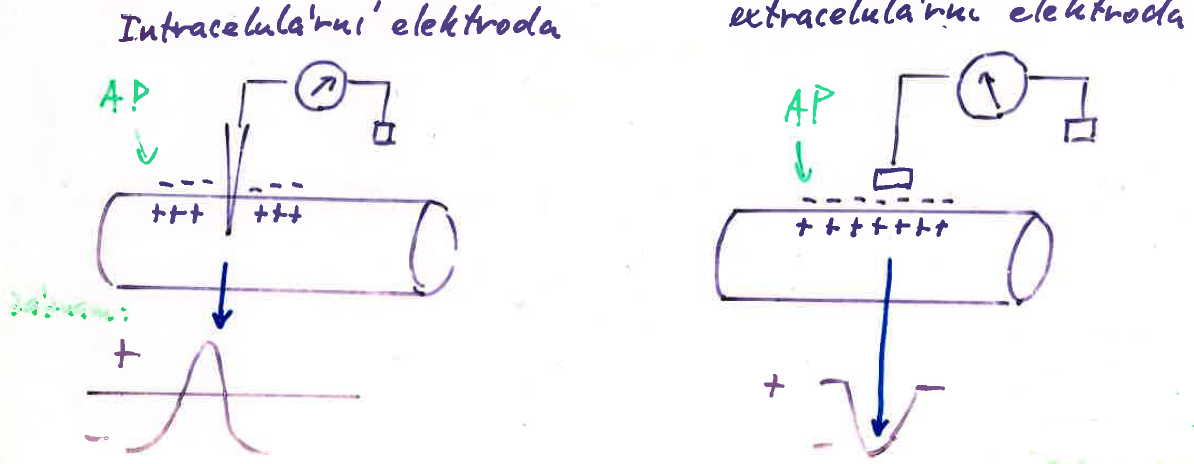 Intracelulární elektroda
extracelulární elektroda
AP
AP
- - - - - -
+++ +++
- - - - - - -
+ + + + + + +
+
-
+
-